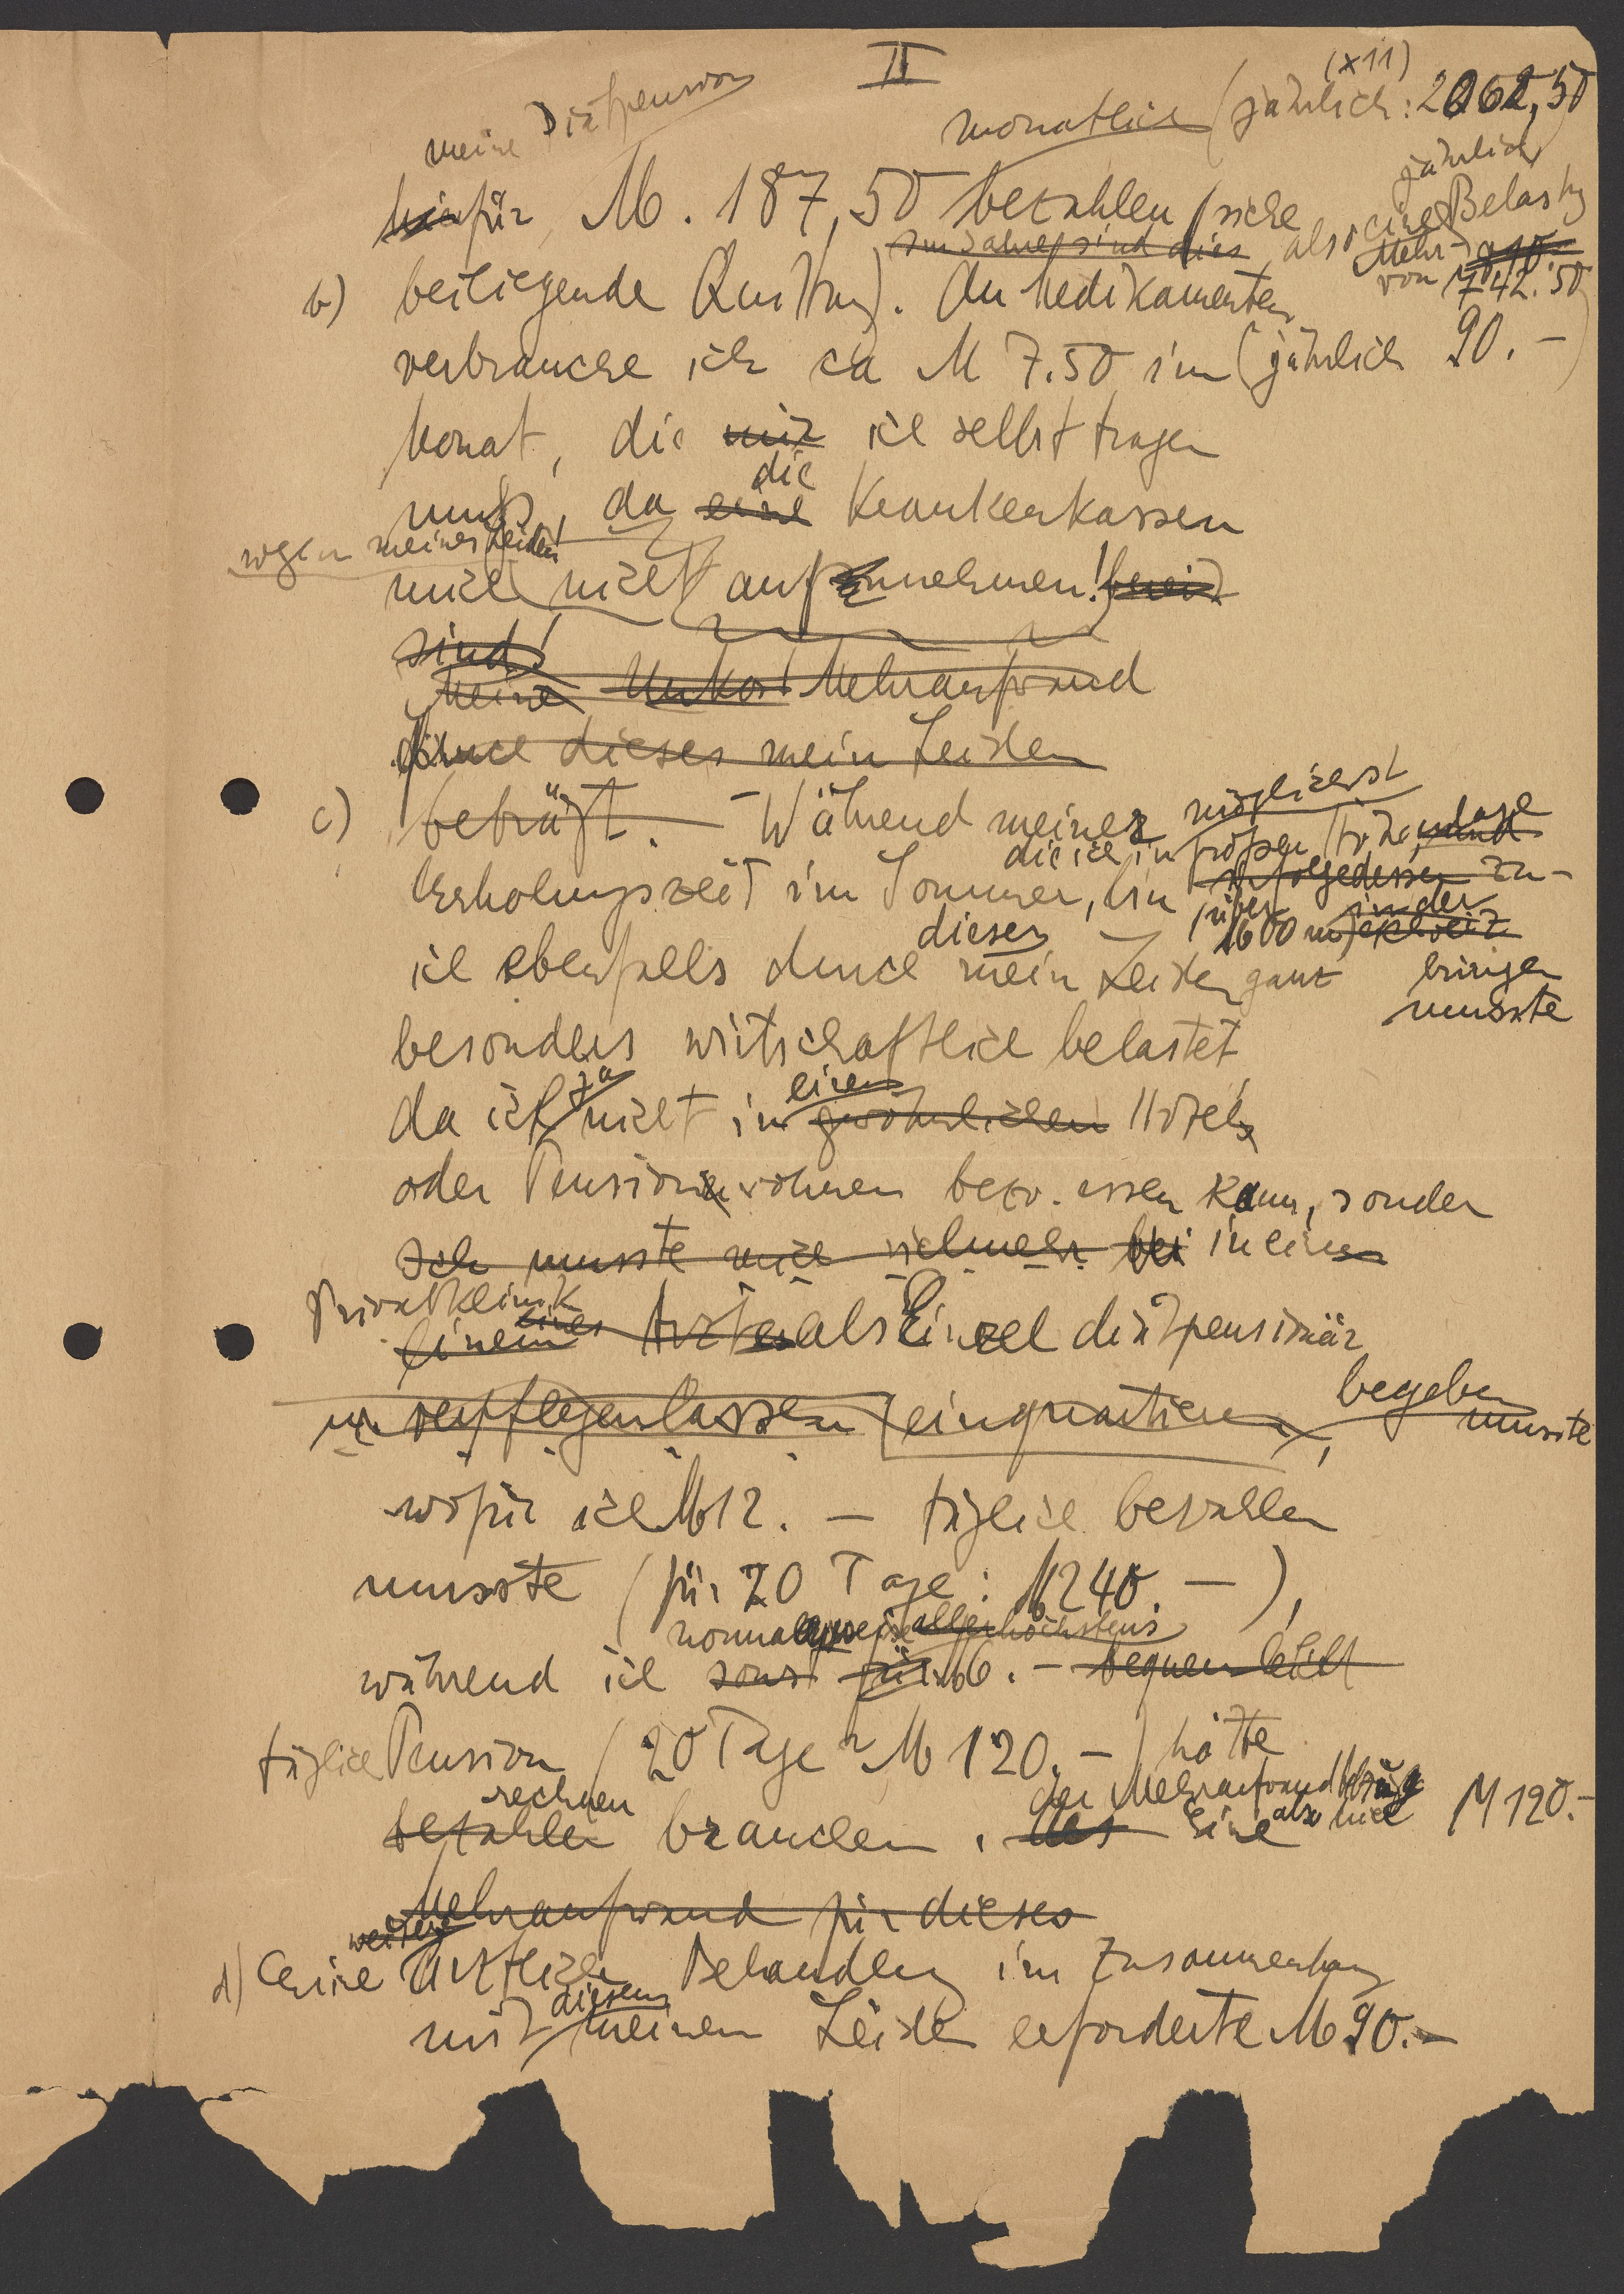 II
meine Diätpension
monatlich (jährlich: 2062,50
(x11)
hierfür M. 187,50 bezahlen (siehe
im Jahre sind dies also eine jährliche Mehr-Belastg
von M 742.50
b) beiliegende Quittung). An Medikamenten
verbrauche ich ca M 7.50 im (jährlich 90.-)
Monat, die mir ich selbst tragen
muß, da eine die Krankenkassen
wegen meines Leidens
mich nicht aufzunehmen! bereit
sind!
Meine Unkost Mehraufwand
durch dieses mein Leiden
c) beträgt. - Während meiner
Erholungszeit im Sommer, die ich in möglichst großer Höhenlage
infolgedessen (über 1600 m) in der Schweiz zu-
bringen
musste
bin
ich ebenfalls durch dieses mein Leiden ganz
besonders wirtschaftlich belastet,
da ich ja nicht in einem gewöhnlichen Hotels
oder Pension wohnen bezw. essen kann, sondern
Ich musste mich vielmehr bei in eine
Privatklinik
einem eines Arztes als Einzeldiätpensionär
verpflegen lassen einquartieren, begeben
musste
wofür ich M 12.- täglich bezahlen
musste (für 20 Tage: M 240.-),
normalerweise allerhöchstens
während ich sonst für M 6.- bequem leicht
täglich Pension (20 Tage = M 120.-) hätte
rechnen
bezahlen brauchen. der Mehraufwand
also hier M 120.-
Mehraufwand für dieses
weitere
d) Eine ärztliche Behandlung im Zusammenhang
mit diesem meinem Leiden erforderte M 90.-